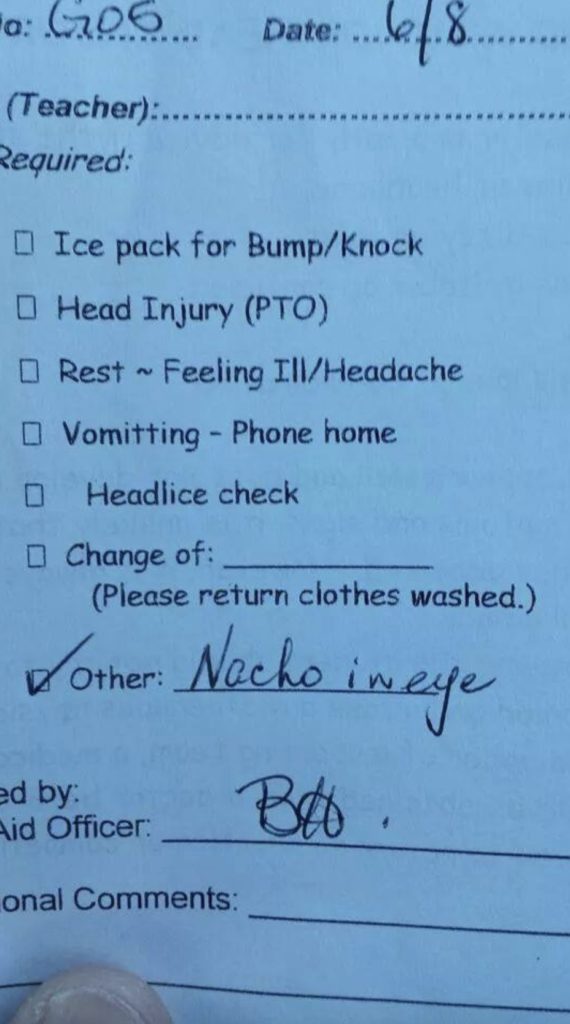 o: G06 Date: 6/8
(Teacher):
Required:
Ice pack for Bump/Knock
Head Injury (PTO)
Rest ~ Feeling Ill/Headache
Vomitting - Phone home
Headlice check
Change of:
(Please return clothes washed.)
Other: Nacho in eye
ed by:
Aid Officer:
onal Comments: